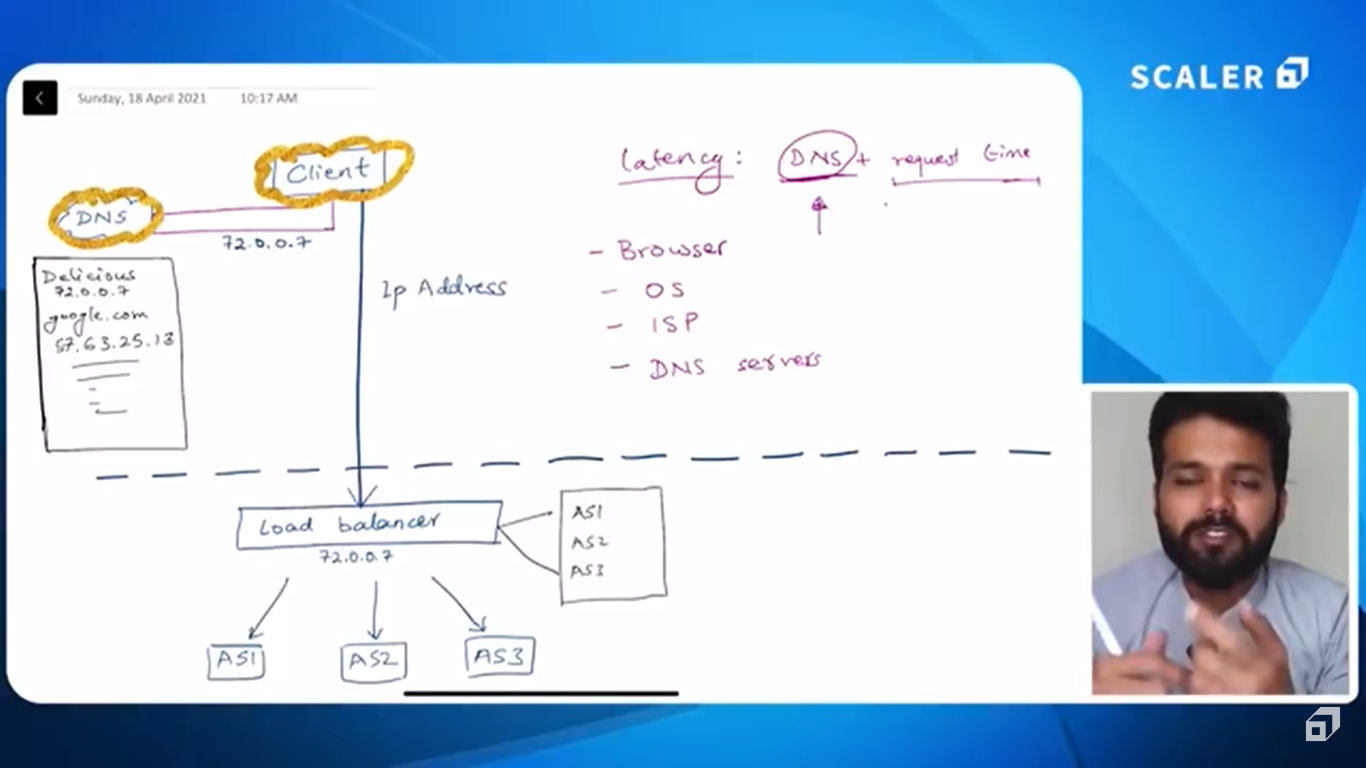 SCALER
Sunday, 18 April 2021 10:17 AM
Client
DNS
72.0.0.7
Delicious
72.0.0.7
google.com
57.63.25.13
Ip Address
Latency: DNS + request time
- Browser
- OS
- ISP
- DNS servers
Load balancer
72.0.0.7
AS1
AS2
AS3
AS1 AS2 AS3